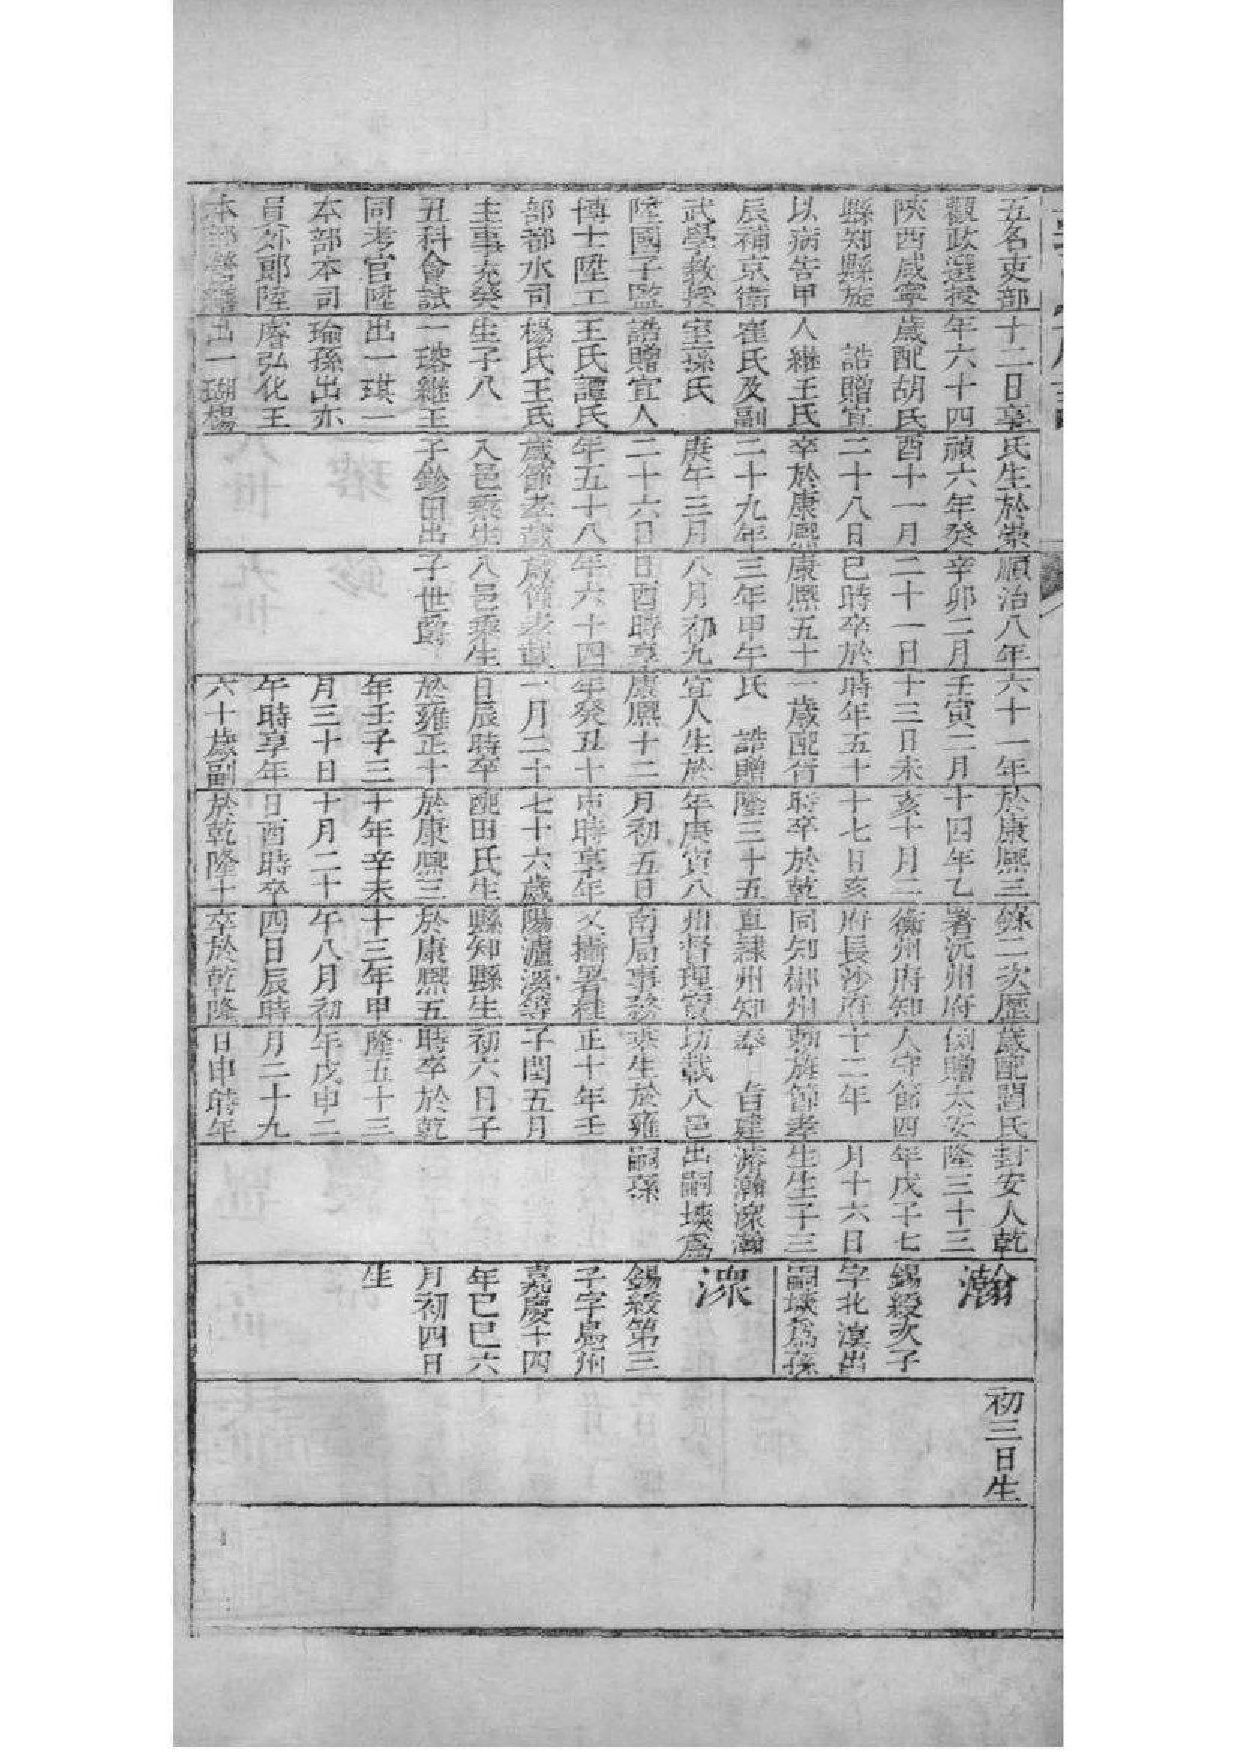 五名吏部
觀政選授
陝西咸寧
縣知縣旋
以病告甲
辰補京衛
武學教授
陞國子監
博士陞工
部都水司
主事充癸
丑科會試
同考官陞
本部本司
員外郎陞
本部營繕
十二日享
年六十四
歲配胡氏
誥贈宜
人繼王氏
崔氏及副
室孫氏
誥贈宜人
王氏譚氏
楊氏王氏
生子八
一瑢繼王
出一琪一
瑜孫出亦
睿弘化王
出一瑚楊
氏生於崇
禎六年癸
酉十一月
二十八日
卒於康熙
二十九年
庚午三月
二十六日
年五十八
歲節孝載
入邑乘生
子鉁田出
順治八年
辛卯二月
二十一日
巳時卒於
康熙五十
三年甲午
八月初九
日酉時享
年六十四
歲節孝載
入邑乘生
子世爵
六十一年
壬寅二月
十三日未
時年五十
一歲配行
氏 誥贈
宜人生於
康熙十二
年癸丑十
一月二十
日辰時卒
於雍正十
年壬子三
月三十日
午時享年
六十歲副
於康熙三
十四年乙
亥十月二
十七日亥
時卒於乾
隆三十五
年庚寅八
月初五日
申時享年
七十六歲
配田氏生
於康熙三
十年辛未
十月二十
日酉時卒
於乾隆十
錄二次歷
署沅州府
衡州府知
府長沙府
同知郴州
直隸州知
州督理寶
南局事務
又攝署桂
陽瀘溪等
縣知縣生
於康熙五
十三年甲
午八月初
四日辰時
卒於乾隆
歲配閻氏
例贈太安
人守節四
十二年
勅旌節孝
奉 旨建
坊載入邑
乘生於雍
正十年壬
子閏五月
初六日子
時卒於乾
隆五十三
年戊申二
月二十九
日申時年
封安人乾
隆三十三
年戊子七
月十六日
生生子三
濤瀚潨瀚
出嗣埮為
嗣孫
瀚
錫綬次子
字北溟出
嗣埮為孫
潨
錫綬第三
子字鳧州
嘉慶十四
年己巳六
月初四日
生
初三日生